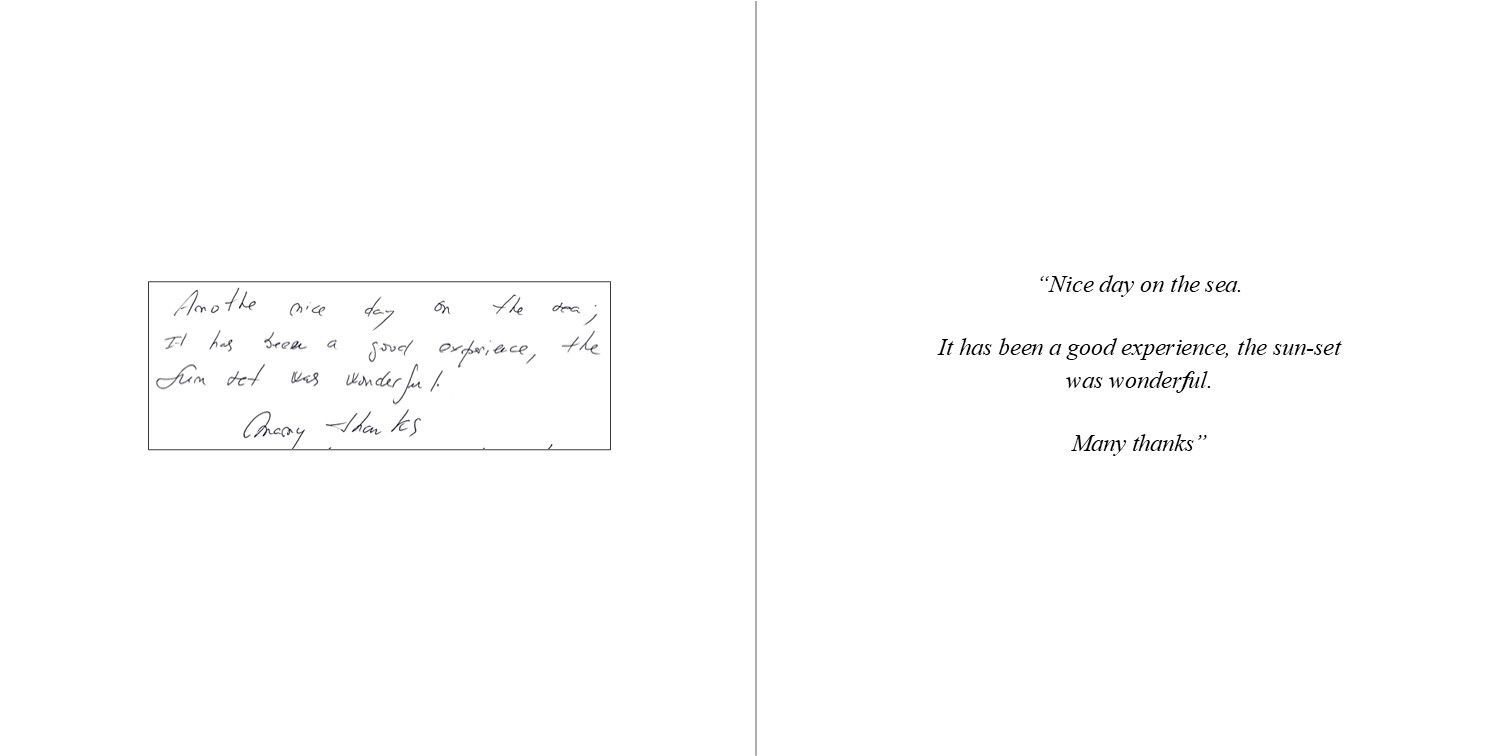 Anothe nice day on the sea;
It has been a good experience, the
sun set was wonderful.
Many thanks
“Nice day on the sea.
It has been a good experience, the sun-set
was wonderful.
Many thanks”